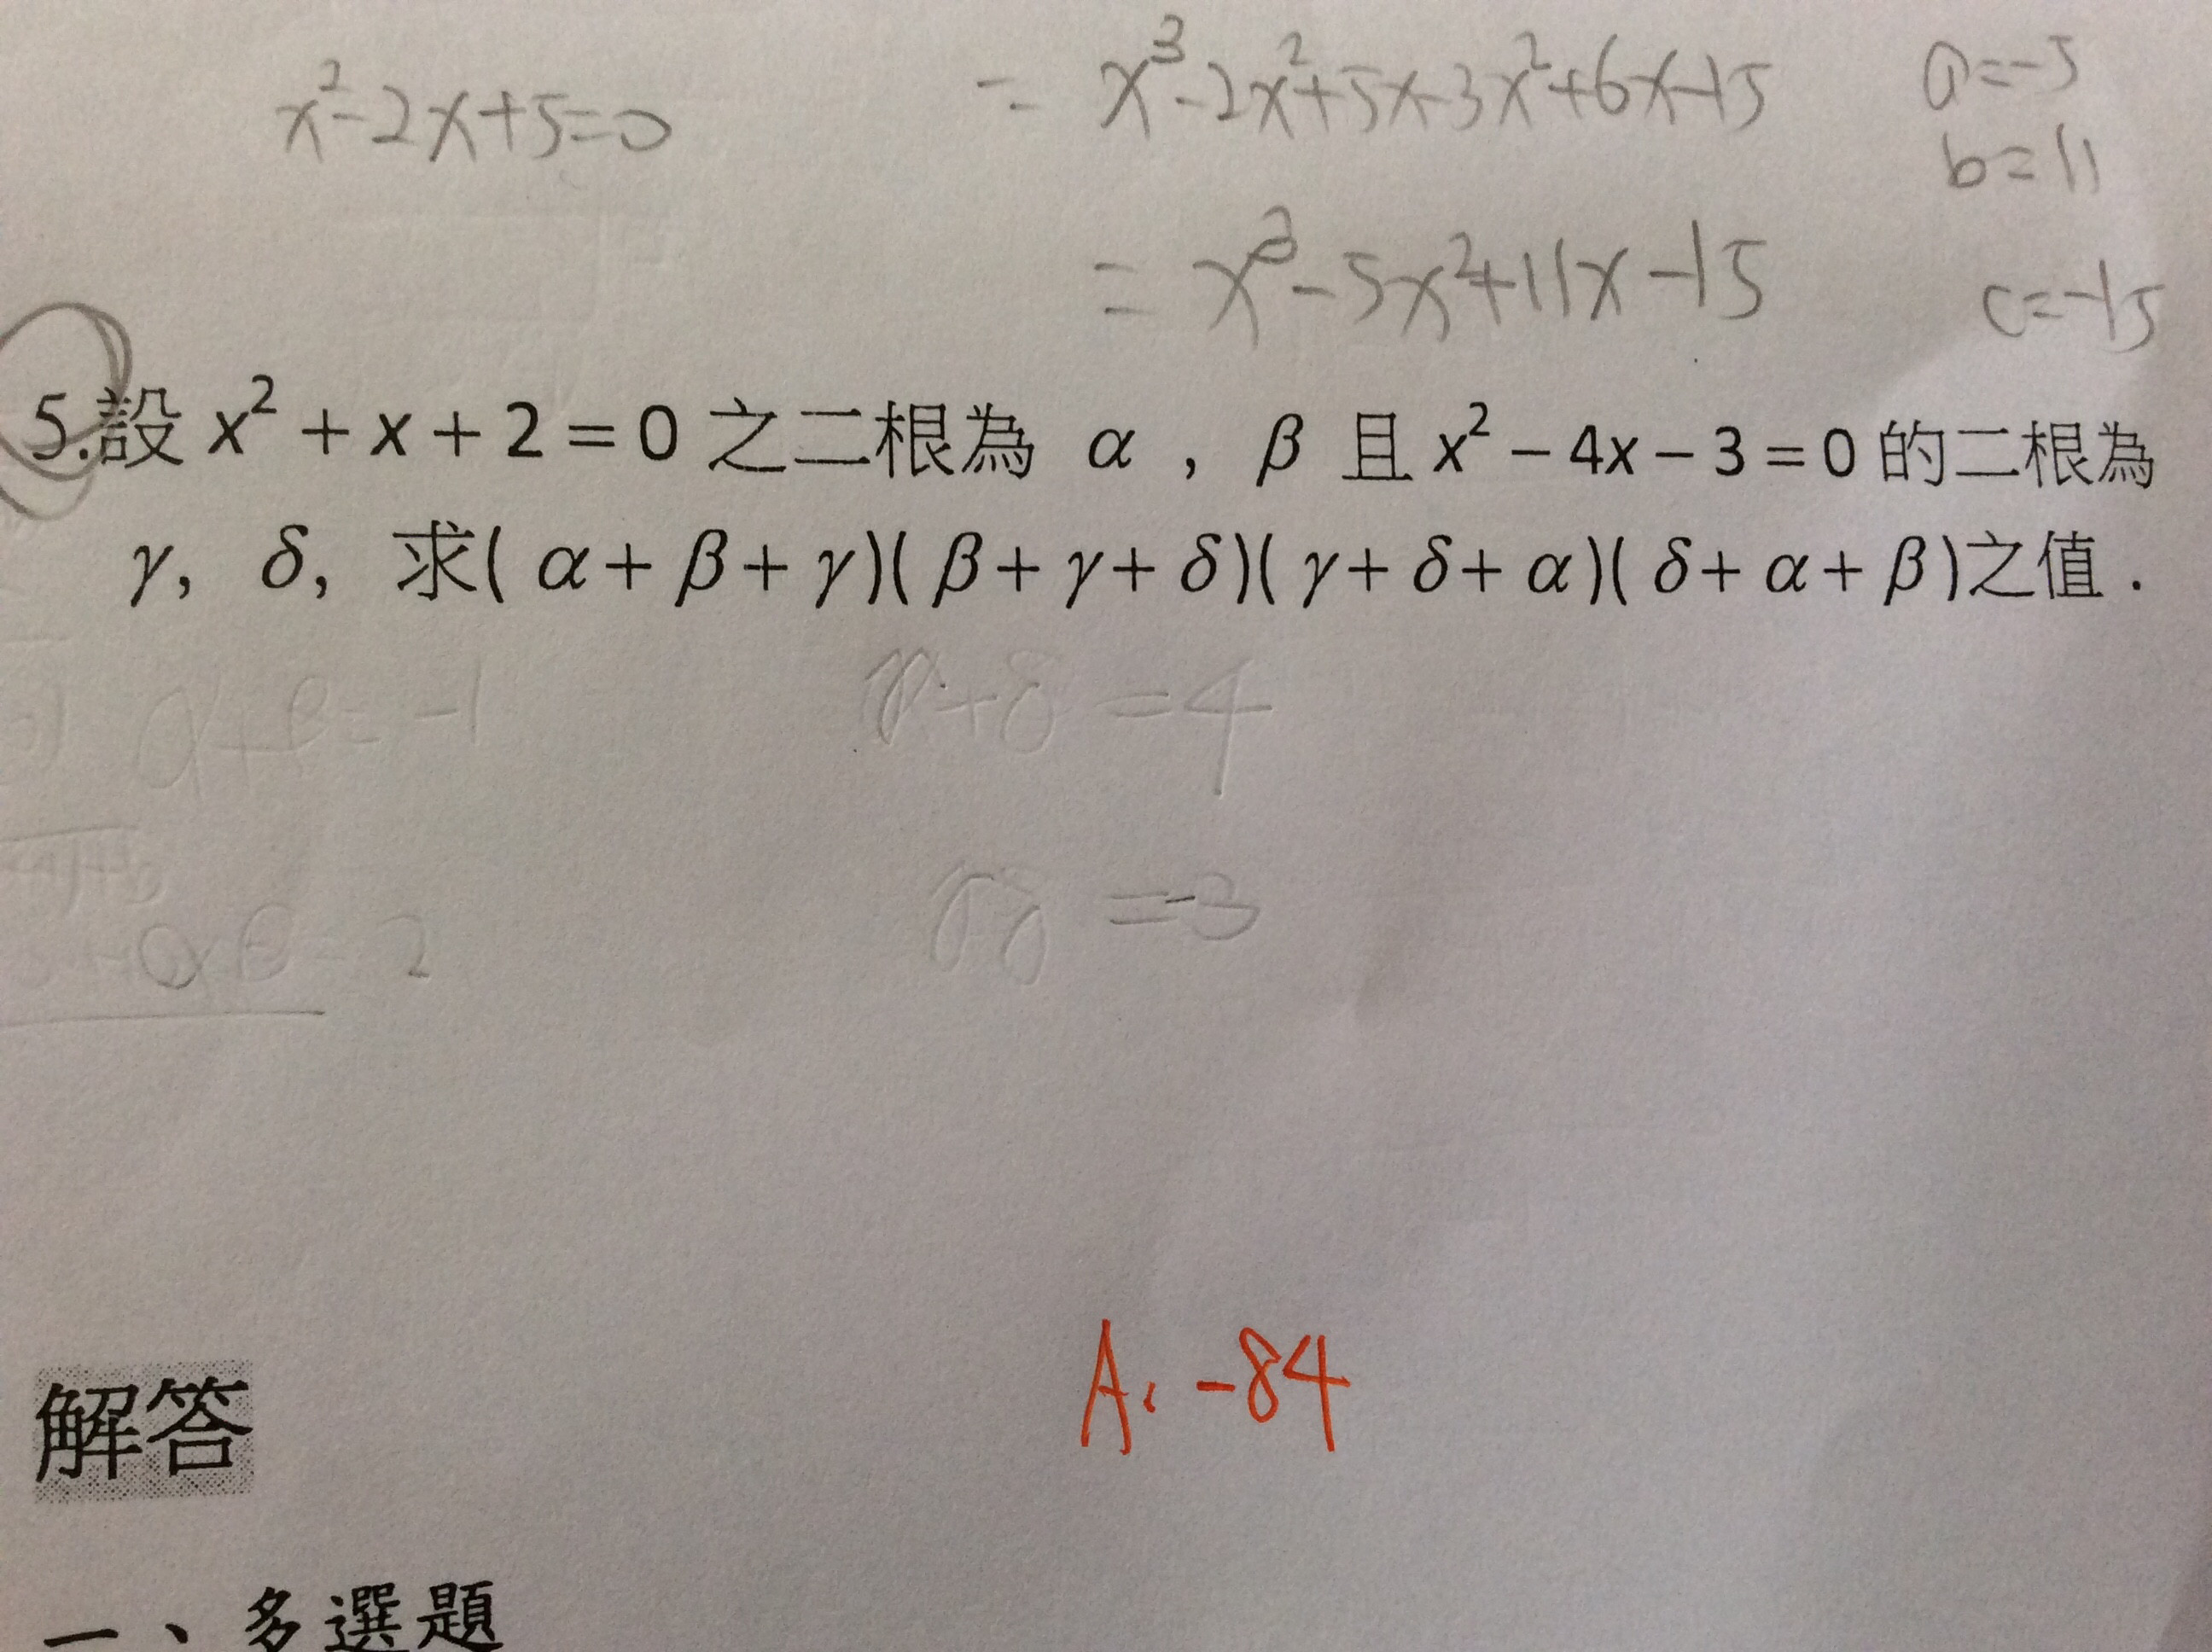 x²-2x+5=0
= x³-2x²+5x-3x²+6x-15
a=-5
b=11
= x³-5x²+11x-15
c=-15
5.設 x² + x + 2 = 0 之二根為 α , β 且 x² − 4x − 3 = 0 的二根為
γ, δ, 求( α + β + γ)( β + γ + δ)( γ + δ + α)( δ + α + β)之值 .
α+β=-1
γ+δ=4
γδ=-3
αβ=2
A: -84
解答
一、多選題